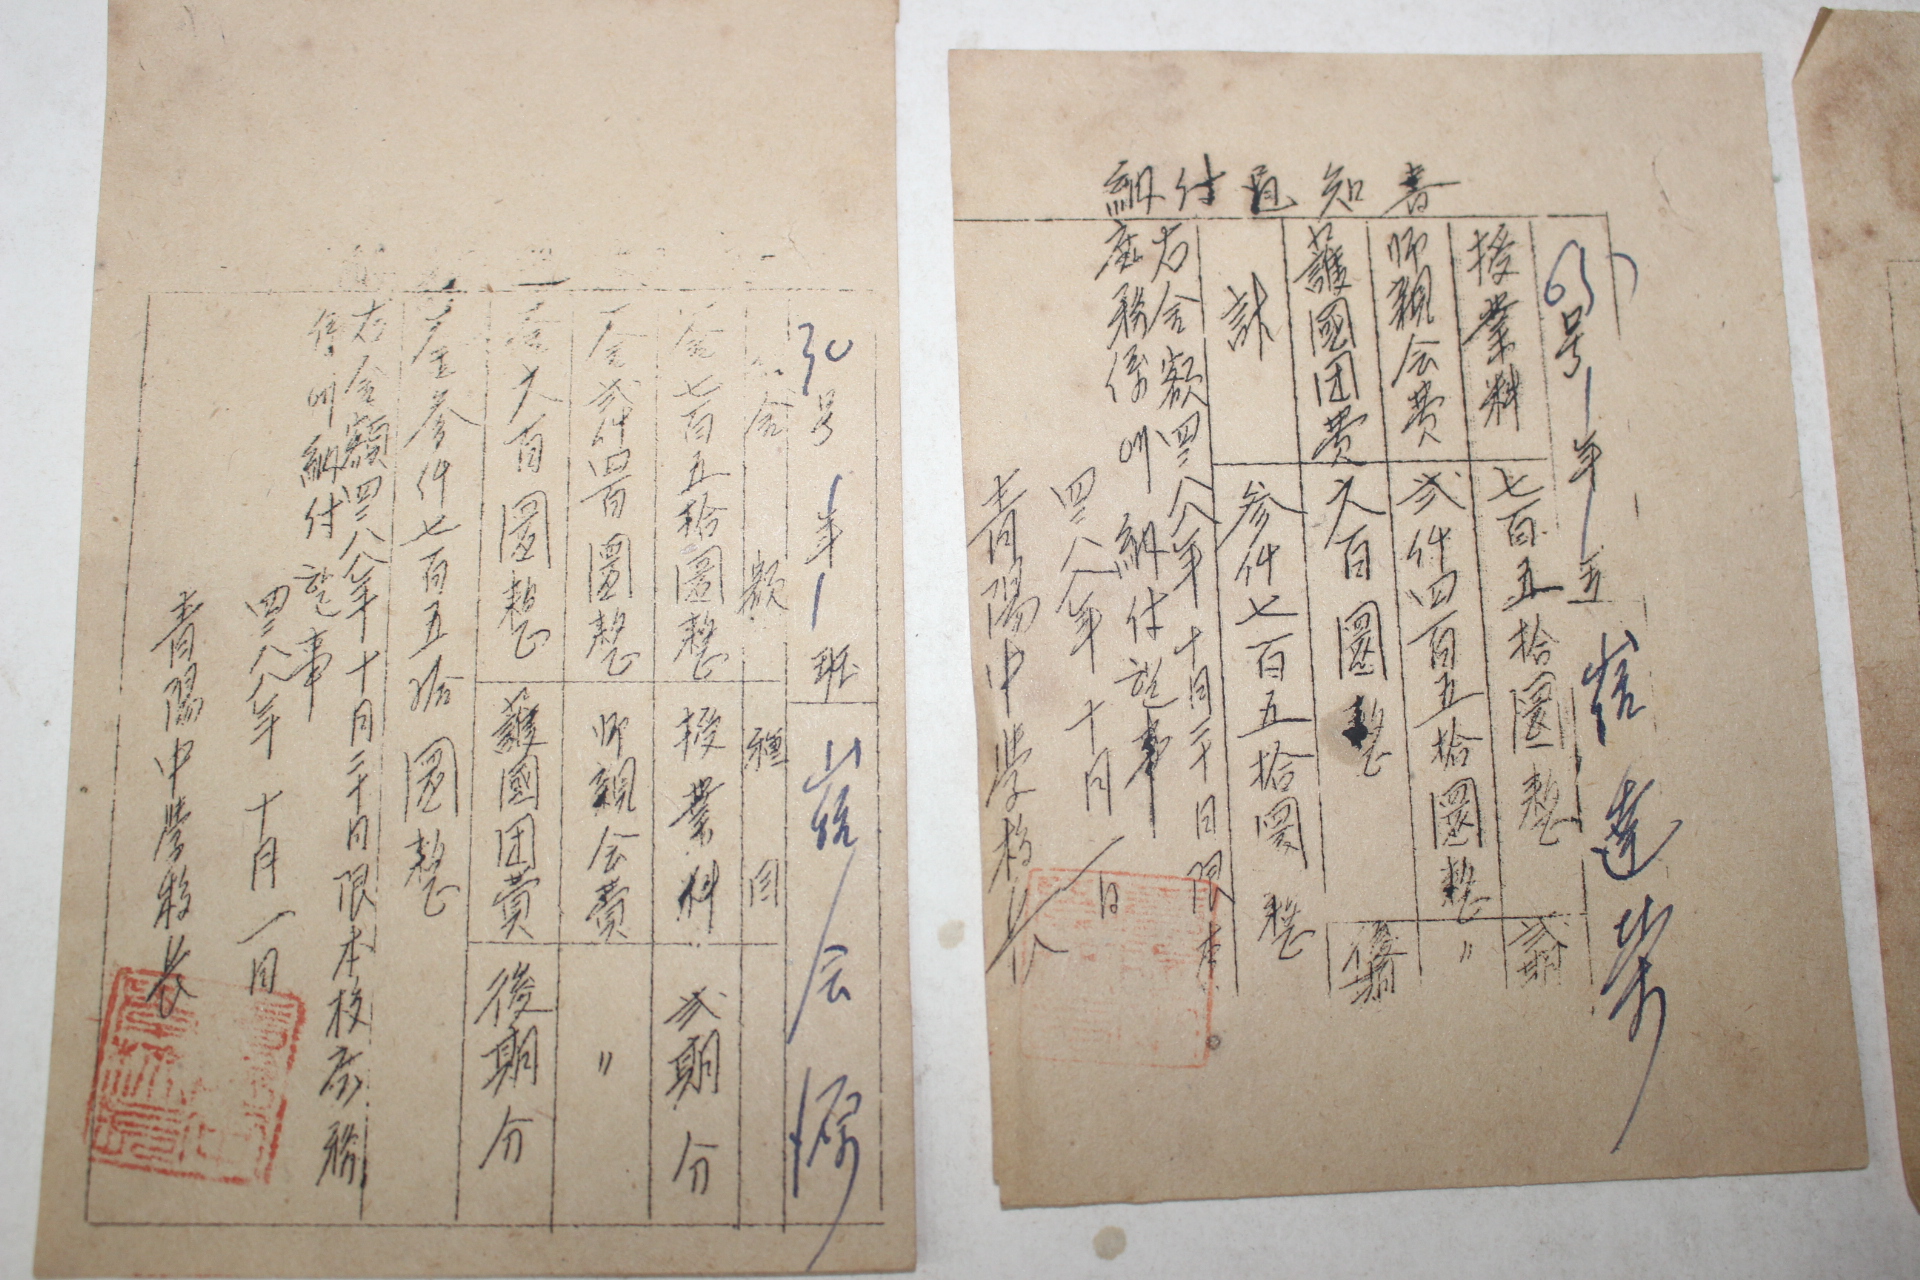 納付通知書
63号 1年 1班 崔達崇
授業料 七百五拾圜整 弐期
師親会費 弐仟四百五拾圜整 〃
護國团費 六百圜整 後期
計 参仟七百五拾圜整
右金額四二八八年十月二十日限 本
庶務係에 納付할事
四二八八年十月一日
青陽中学校長
30号 1年 1班 崔会源
金額 種目
金七百五拾圜整 授業料 弐期分
金弐仟四百圜整 師親会費 〃
金六百圜整 護國团費 後期分
金参仟七百五拾圜整
右金額四二八八年十月二十日限本校庶務
係에 納付할事
四二八八年十月一日
青陽中学校長